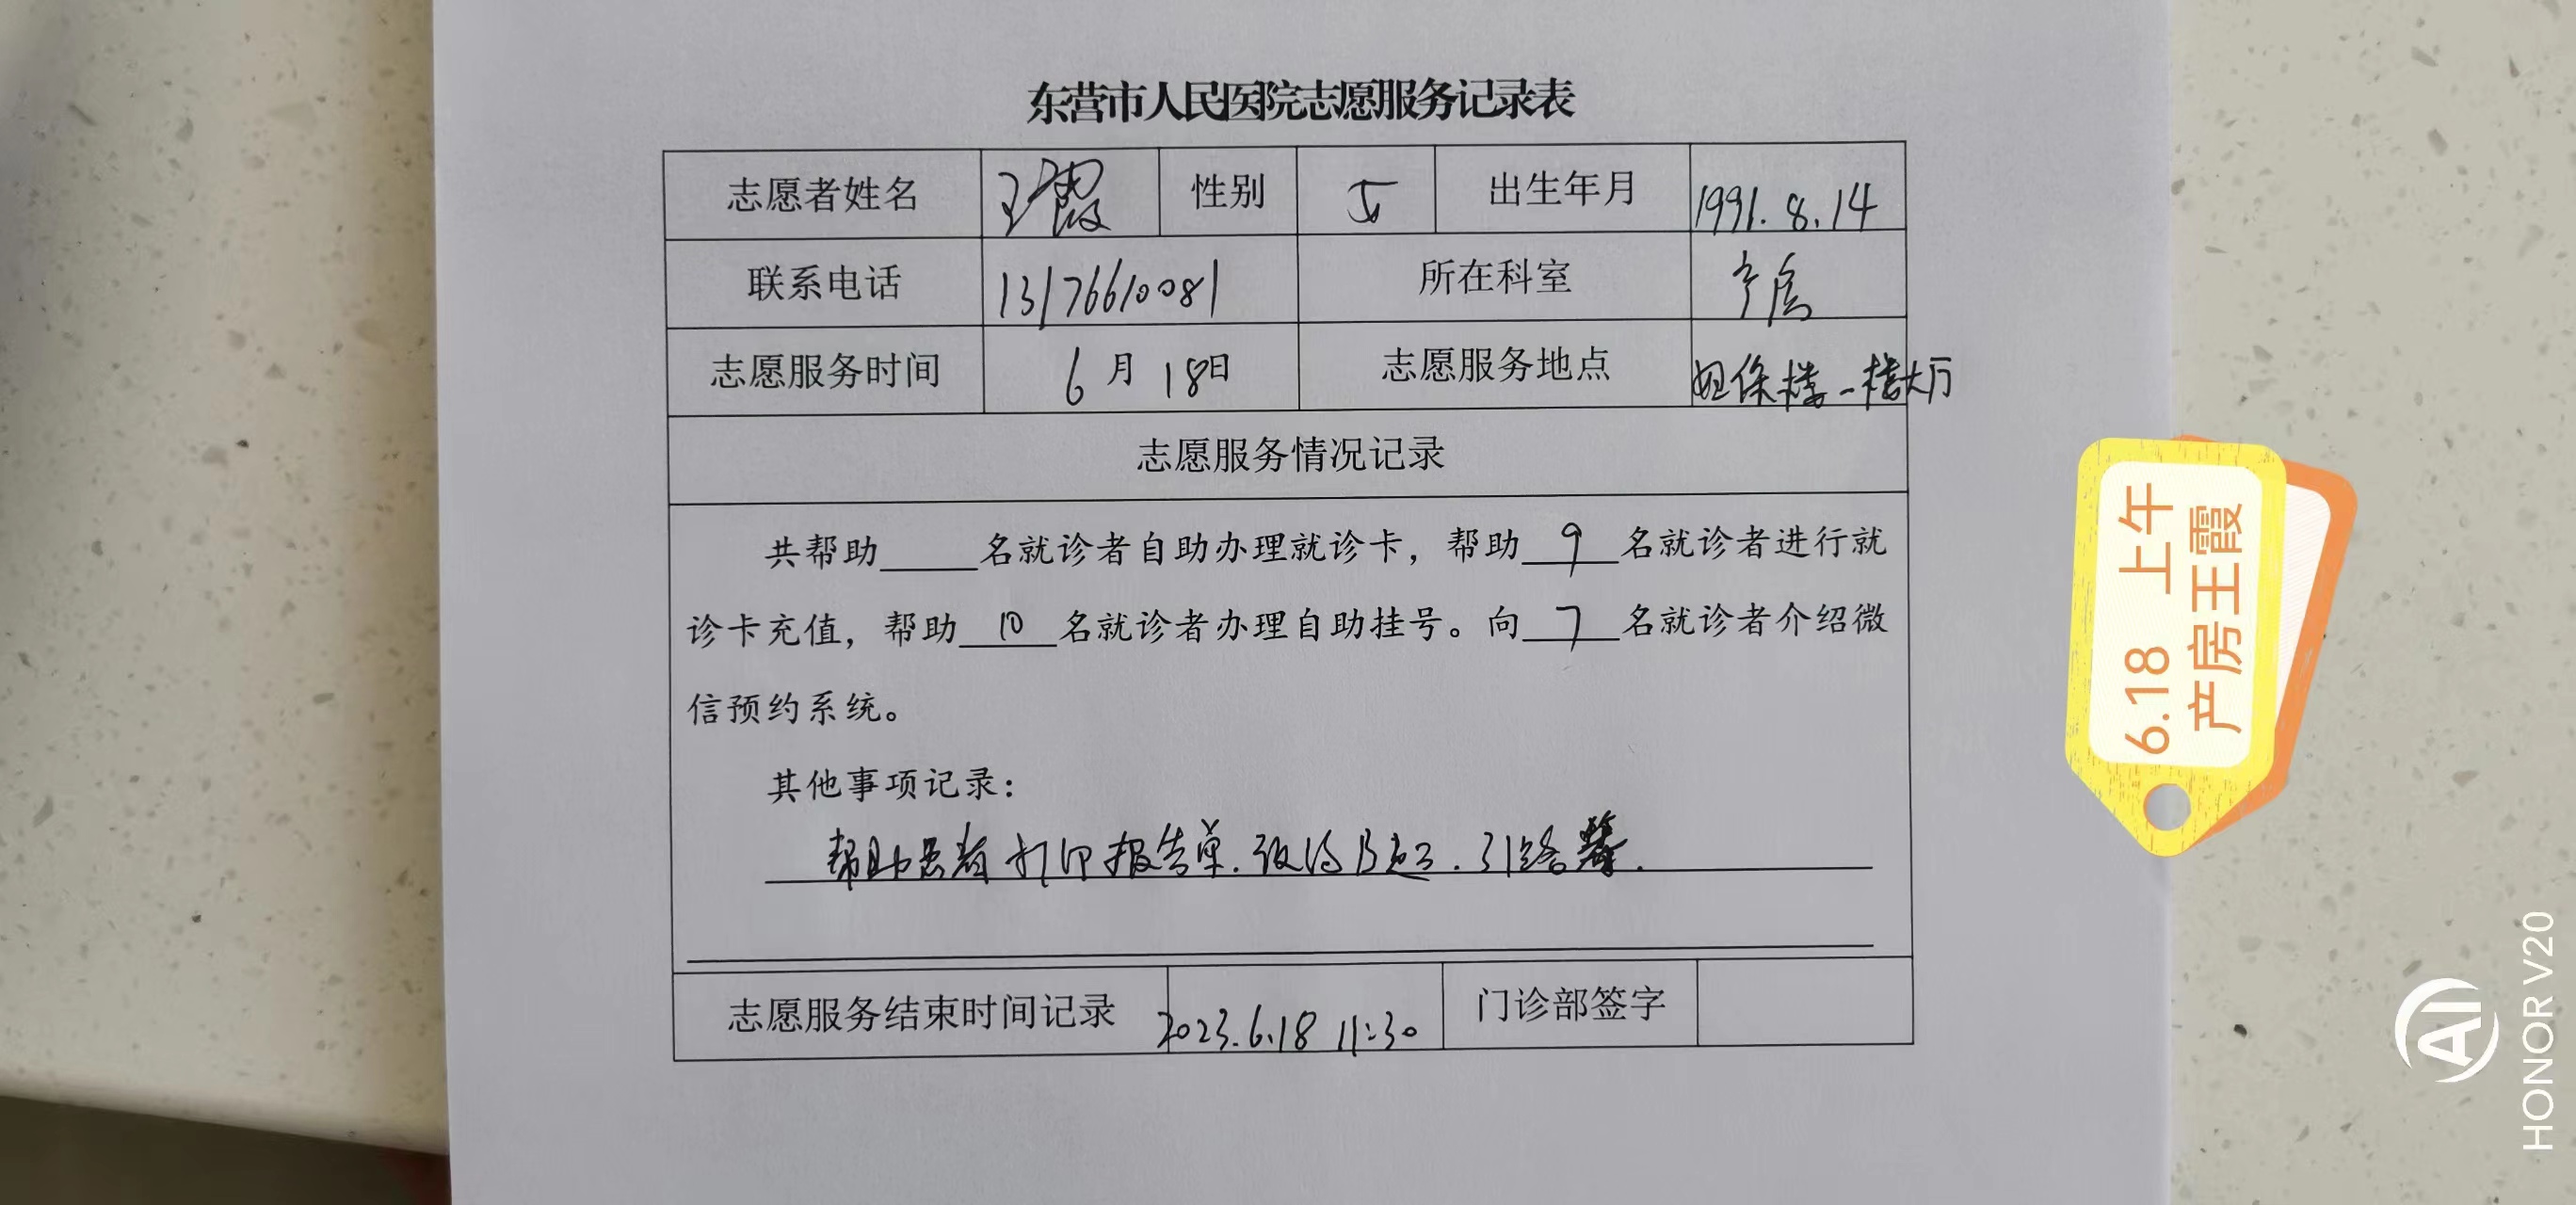 东营市人民医院志愿服务记录表
志愿者姓名 王霞 性别 女 出生年月 1991.8.14
联系电话 13176610081 所在科室 产房
志愿服务时间 6月18日 志愿服务地点 妇保楼一楼大厅
志愿服务情况记录
共帮助 名就诊者自助办理就诊卡，帮助 9 名就诊者进行就
诊卡充值，帮助 10 名就诊者办理自助挂号。向 7 名就诊者介绍微
信预约系统。
其他事项记录：
帮助患者打印报告单. 引路等.
志愿服务结束时间记录 2023.6.18 11:30 门诊部签字
6.18 上午
产房王霞
AI
HONOR V20